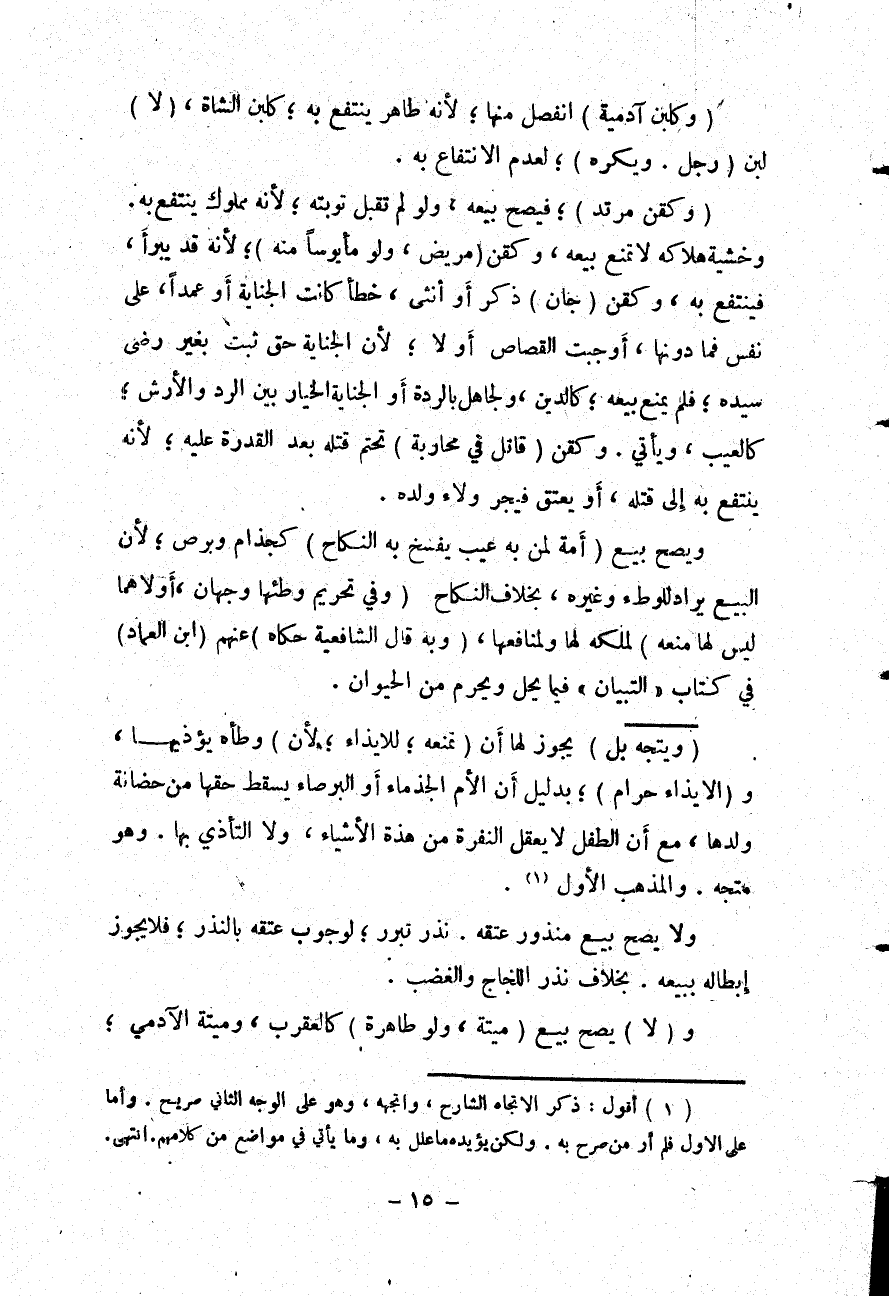 ( وكلبن آدمية ) انفصل منها ؛ لأنه طاهر ينتفع به ؛ كلبن الشاة ، ( لا )
لبن ( رجل . ويكره ) ؛ لعدم الانتفاع به .
( وكقن مرتد ) ؛ فيصح بيعه ، ولو لم تقبل توبته ؛ لأنه مملوك ينتفع به .
وخشية هلاكه لا تمنع بيعه ، وكقن ( مريض ، ولو مأيوساً منه ) ؛ لأنه قد يبرأ ،
فينتفع به ، وكقن ( جان ) ذكر أو أنثى ، خطأ كانت الجناية أو عمداً ، على
نفس فما دونها ، أوجبت القصاص أو لا ؛ لأن الجناية حق ثبت بغير رضى
سيده ؛ فلم يمنع بيعه ؛ كالدين ، ولجاهل بالردة أو الجناية الخيار بين الرد والأرش ؛
كالعيب ، ويأتي . وكقن ( قاتل في محاربة ) تحتم قتله بعد القدرة عليه ؛ لأنه
ينتفع به إلى قتله ، أو يعتق فيجر ولاء ولده .
ويصح بيع ( أمة لمن به عيب يفسخ به النكاح ) كجذام وبرص ؛ لأن
البيع يراد للوطء وغيره ، بخلاف النكاح ( وفي تحريم وطئها وجهان ، أولاهما
ليس لها منعه ) لملكه لها ولمنافعها ، ( وبه قال الشافعية حكاه ) عنهم ( ابن العماد )
في كتاب « التبيان » فيما يحل ويحرم من الحيوان .
( ويتجه بل ) يجوز لها أن ( تمنعه ؛ للايذاء ؛ لأن ) وطأه يؤذيها ،
و ( الايذاء حرام ) ؛ بدليل أن الأم الجذماء أو البرصاء يسقط حقها من حضانة
ولدها ، مع أن الطفل لا يعقل النفرة من هذة الأشياء ، ولا التأذي بها . وهو
متجه . والمذهب الأول (١) .
ولا يصح بيع منذور عتقه . نذر تبرر ؛ لوجوب عتقه بالنذر ؛ فلا يجوز
إبطاله ببيعه . بخلاف نذر اللجاج والغضب .
و ( لا ) يصح بيع ( ميتة ، ولو طاهرة ) كالعقرب ، وميتة الآدمي ؛
( ١ ) أقول : ذكر الاتجاه الشارح ، واتجهه ، وهو على الوجه الثاني صريح . وأما
على الاول فلم أر من صرح به . ولكن يؤيده ما علل به ، وما يأتي في مواضع من كلامهم . انتهى .
– ١٥ –